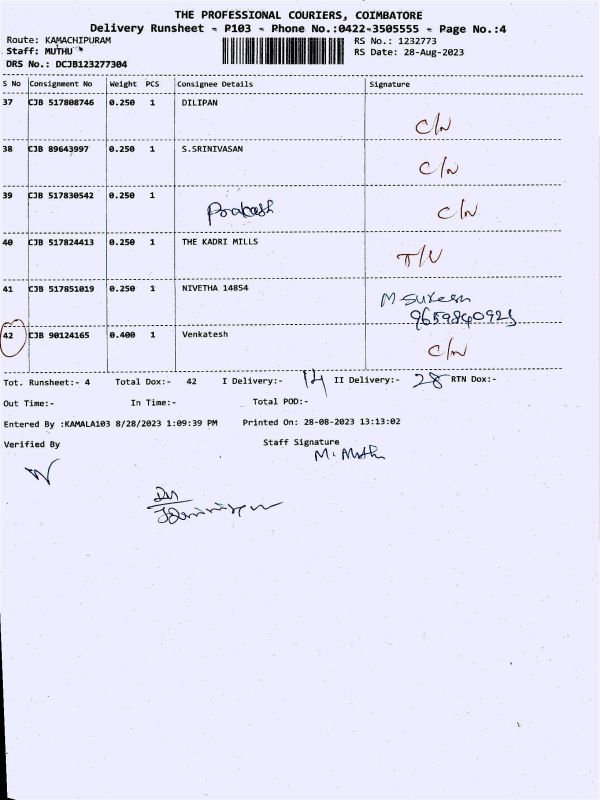 THE PROFESSIONAL COURIERS, COIMBATORE
Delivery Runsheet - P103 - Phone No.:0422-3505555 - Page No.:4
Route: KAMACHIPURAM RS No.: 1232773
Staff: MUTHU RS Date: 28-Aug-2023
DRS No.: DCJB123277304
S No Consignment No Weight PCS Consignee Details Signature
37 CJB 517808746 0.250 1 DILIPAN
C/N
38 CJB 89643997 0.250 1 S.SRINIVASAN
C/N
39 CJB 517830542 0.250 1
Prakash C/N
40 CJB 517824413 0.250 1 THE KADRI MILLS
T/V
41 CJB 517851019 0.250 1 NIVETHA 14854
M Suresh
42 CJB 90124165 0.400 1 Venkatesh
C/N
Tot. Runsheet:- 4 Total Dox:- 42 I Delivery:- 14 II Delivery:- 28 RTN Dox:-
Out Time:- In Time:- Total POD:-
Entered By :KAMALA103 8/28/2023 1:09:39 PM Printed On: 28-08-2023 13:13:02
Verified By Staff Signature
M. Muth